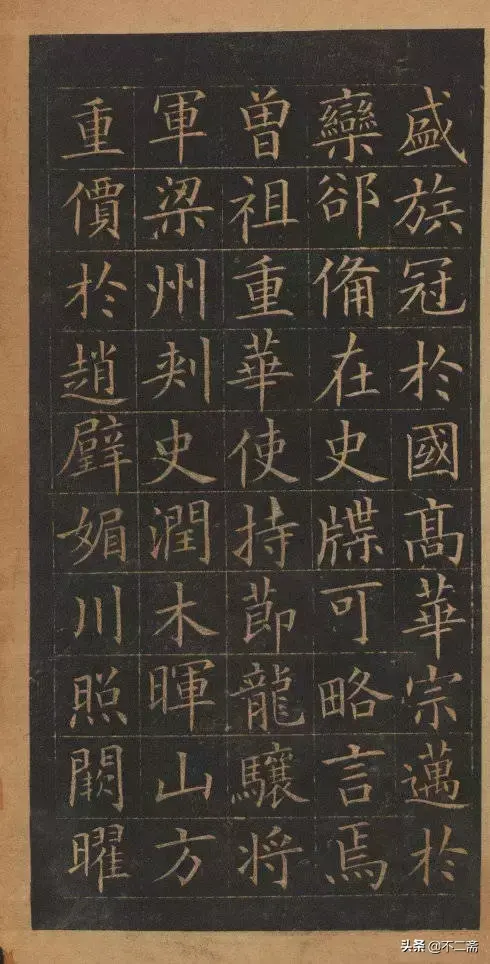 盛族冠於國髙華宗邁於
欒郤俻在史牒可略言焉
曽祖重華使持節龍驤将
軍梁州刾史潤木暉山方
重價於趙璧媚川照闕曜
头条 @不二斋